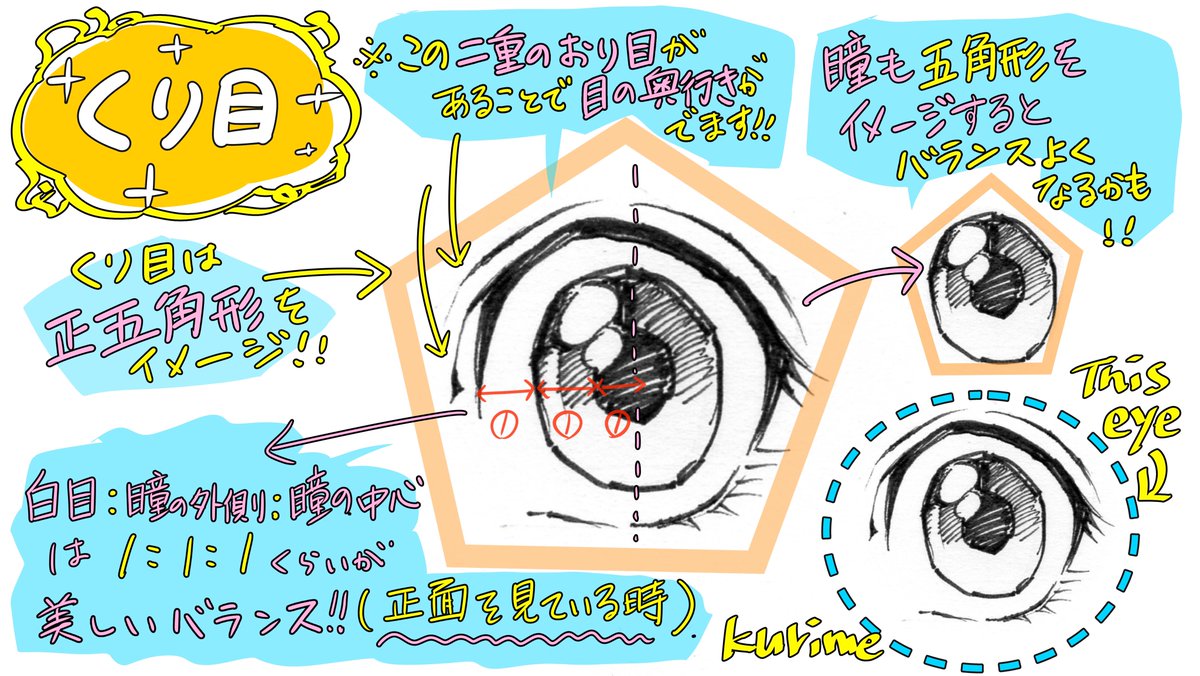 くり目
※この二重のおり目が
あることで目の奥行きが
でます!!
瞳も五角形を
イメージすると
バランスよく
なるかも
!!
くり目は
正五角形を
イメージ!!
① ① ①
白目:瞳の外側:瞳の中心
は 1:1:1 くらいが
美しいバランス!!(正面を見ている時).
This
eye
kurime